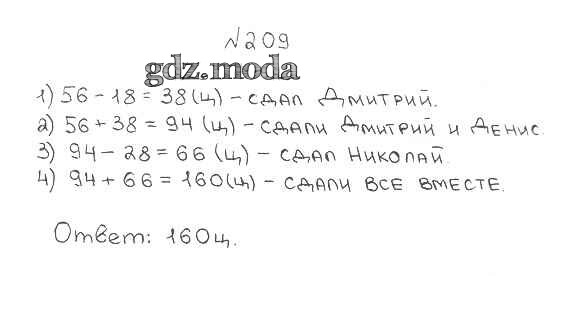 №209
gdz.moda
1) 56 - 18 = 38 (ц) - сдал Дмитрий.
2) 56 + 38 = 94 (ц) - сдали Дмитрий и Денис.
3) 94 - 28 = 66 (ц) - сдал Николай.
4) 94 + 66 = 160 (ц) - сдали все вместе.
Ответ: 160 ц.